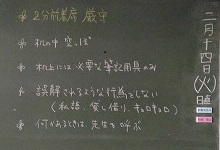 ※ 2分前着席 厳守
※ 机の中 空っぽ
※ 机上には 必要な筆記用具のみ
※ 誤解されるような行為をしない
(私語、貸し借り、キョロキョロ)
※ 何かあるときは、先生を呼ぶ
二月十四日(火)
日直